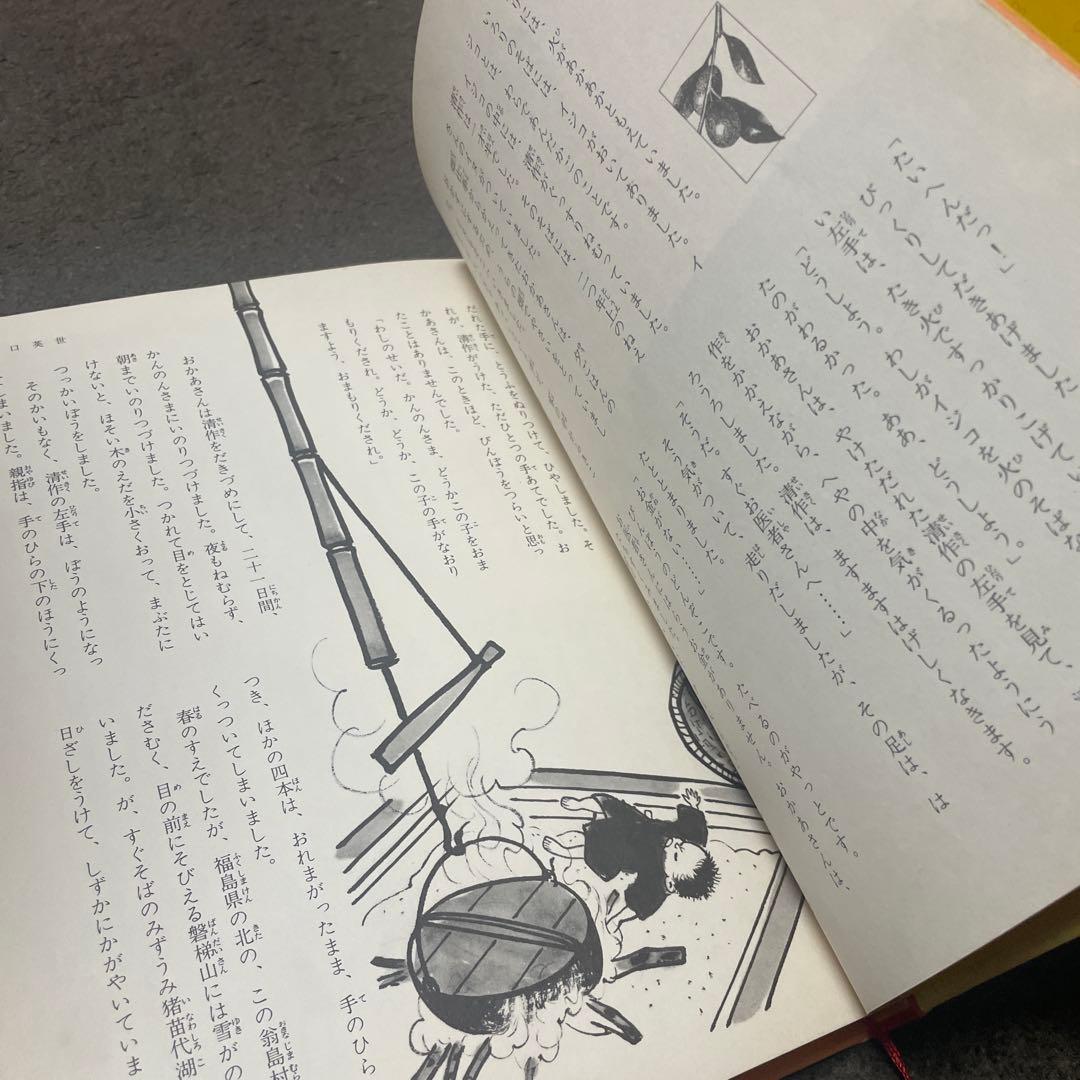 りには、火があかあかともえていました。
いろりのそばには、イジコがおいてありました。イ
ジコとは、わらであんだかごのことです。
イジコの中には、清作がぐっすりねむっていました。
そのそばには、二つ年上のねえ
「たいへんだっ！」
びっくりしてだきあげました
い左手は、たき火ですっかりこげてい
「どうしよう。わしがイジコを火のそばな
たのがわるかった。ああ、どうしよう。」
おかあさんは、やけただれた清作の左手を見て、
作をかかえながら、へやの中を気がくるったようにう
ろうろしました。清作は、ますますはげしくなきます。
「そうだ。すぐお医者さんへ……」
そう気がついて、走りだしましたが、その足は、は
たととまりました。
「お金がない……」
びんぼうのどんぞこです。たべるのがやっとです。
お金がありません。おかあさんは、
だれた手に、とうふをぬりつけて、ひやしました。そ
れが、清作がうけた、ただひとつの手あてでした。お
かあさんは、このときほど、びんぼうをつらいと思っ
たことはありませんでした。
「わしのせいだ。かんのんさま、どうかこの子をおま
もりくだされ。どうか、どうか、この子の手がなおり
ますよう、おまもりくだされ。」
おかあさんは清作をだきづめにして、二十一日間、
かんのんさまにいのりつづけました。夜もねむらず、
朝までいのりつづけました。つかれて目をとじてはい
けないと、ほそい木のえだを小さくおって、まぶたに
つっかいぼうをしました。
そのかいもなく、清作の左手は、ぼうのようになっ
てしまいました。親指は、手のひらの下のほうにくっ
つき、ほかの四本は、おれまがったまま、手のひら
くっついてしまいました。
春のすえでしたが、福島県の北の、この翁島村
ださむく、目の前にそびえる磐梯山には雪がの
いました。が、すぐそばのみずうみ猪苗代湖
日ざしをうけて、しずかにかがやいていま
口英世